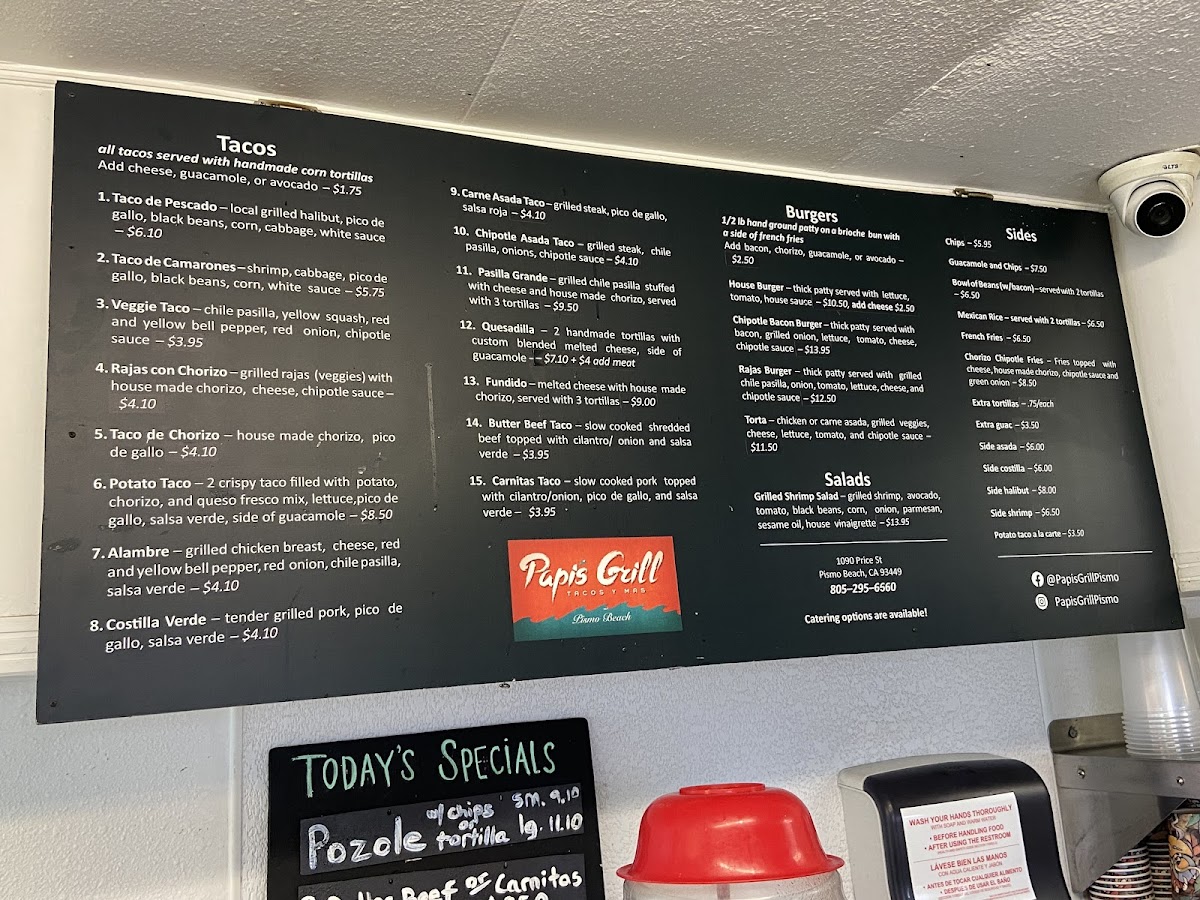 Tacos
all tacos served with handmade corn tortillas
Add cheese, guacamole, or avocado – $1.75
1. Taco de Pescado – local grilled halibut, pico de
gallo, black beans, corn, cabbage, white sauce
– $6.10
2. Taco de Camarones – shrimp, cabbage, pico de
gallo, black beans, corn, white sauce – $5.75
3. Veggie Taco – chile pasilla, yellow squash, red
and yellow bell pepper, red onion, chipotle
sauce – $3.95
4. Rajas con Chorizo – grilled rajas (veggies) with
house made chorizo, cheese, chipotle sauce –
$4.10
5. Taco de Chorizo – house made chorizo, pico
de gallo – $4.10
6. Potato Taco – 2 crispy taco filled with potato,
chorizo, and queso fresco mix, lettuce,pico de
gallo, salsa verde, side of guacamole – $8.50
7. Alambre – grilled chicken breast, cheese, red
and yellow bell pepper, red onion, chile pasilla,
salsa verde – $4.10
8. Costilla Verde – tender grilled pork, pico de
gallo, salsa verde – $4.10
9. Carne Asada Taco – grilled steak, pico de gallo,
salsa roja – $4.10
10. Chipotle Asada Taco – grilled steak, chile
pasilla, onions, chipotle sauce – $4.10
11. Pasilla Grande – grilled chile pasilla stuffed
with cheese and house made chorizo, served
with 3 tortillas – $9.50
12. Quesadilla – 2 handmade tortillas with
custom blended melted cheese, side of
guacamole – $7.10 + $4 add meat
13. Fundido – melted cheese with house made
chorizo, served with 3 tortillas – $9.00
14. Butter Beef Taco – slow cooked shredded
beef topped with cilantro/ onion and salsa
verde – $3.95
15. Carnitas Taco – slow cooked pork topped
with cilantro/onion, pico de gallo, and salsa
verde – $3.95
Papi's Grill
TACOS Y MAS
Pismo Beach
Burgers
1/2 lb hand ground patty on a brioche bun with
a side of french fries
Add bacon, chorizo, guacamole, or avocado –
$2.50
House Burger – thick patty served with lettuce,
tomato, house sauce – $10.50, add cheese $2.50
Chipotle Bacon Burger – thick patty served with
bacon, grilled onion, lettuce, tomato, cheese,
chipotle sauce – $13.95
Rajas Burger – thick patty served with grilled
chile pasilla, onion, tomato, lettuce, cheese, and
chipotle sauce – $12.50
Torta – chicken or carne asada, grilled veggies,
cheese, lettuce, tomato, and chipotle sauce –
$11.50
Salads
Grilled Shrimp Salad – grilled shrimp, avocado,
tomato, black beans, corn, onion, parmesan,
sesame oil, house vinaigrette – $13.95
1090 Price St
Pismo Beach, CA 93449
805–295–6560
Catering options are available!
Sides
Chips – $5.95
Guacamole and Chips – $7.50
Bowl of Beans (w/bacon) – served with 2 tortillas
– $6.50
Mexican Rice – served with 2 tortillas – $6.50
French Fries – $6.50
Chorizo Chipotle Fries – Fries topped with
cheese, house made chorizo, chipotle sauce and
green onion – $8.50
Extra tortillas – .75/each
Extra guac – $3.50
Side asada – $6.00
Side costilla – $6.00
Side halibut – $8.00
Side shrimp – $6.50
Potato taco a la carte – $3.50
@PapisGrillPismo
PapisGrillPismo
TODAY'S SPECIALS
Pozole w/ chips or tortilla
SM. 9.10
lg. 11.10
Beef or Carnitas
WASH YOUR HANDS THOROUGHLY
WITH SOAP AND WARM WATER
• BEFORE HANDLING FOOD
• AFTER USING THE RESTROOM
LÁVESE BIEN LAS MANOS
CON AGUA CALIENTE Y JABÓN
• ANTES DE TOCAR CUALQUIER ALIMENTO
• DESPUÉS DE USAR EL BAÑO